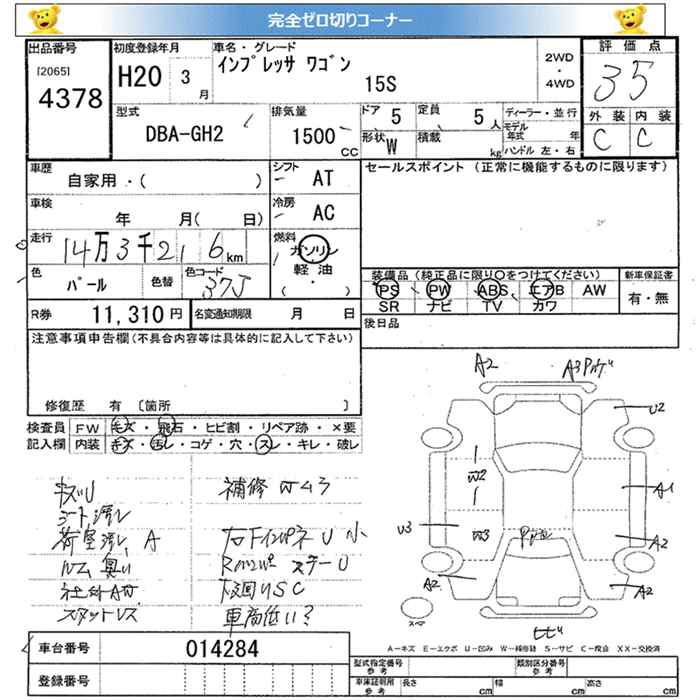 完全ゼロ切りコーナー
出品番号
[2065]
4378
初度登録年月
H20 3 月
車名・グレード
インプレッサ ワゴン
15S
2WD
・
4WD
評価点
35
外装 内装
C C
型式
DBA-GH2
排気量
1500 CC
ドア 5
定員 5 人
形状 W
積載 kg
ディーラー・並行
モデル年式 年
ハンドル 左・右
車歴
自家用・( )
シフト AT
セールスポイント (正常に機能するものに限ります)
車検
年 月( 日)
冷房 AC
走行
14万3千216 km
燃料
ガソリン
軽油
( ・ )
色
パール
色替
色コード
37J
装備品 (純正品に限り○をつけてください)
新車保証書
PS PW ABS エアB AW
SR ナビ TV カワ
有・無
R券 11,310 円
名変通知期限 月 日
後日品
注意事項申告欄 (不具合内容等は具体的に記入して下さい)
修復歴 有 [箇所 ]
検査員記入欄
FW キズ・飛石・ヒビ割・リペア跡・×要
内装 キズ・汚レ・コゲ・穴・スレ・キレ・破レ
シート汚レ
荷室汚レ、A
ルム臭い
スタットレス
補修 W43
車高低い?
A2
U2
W2
A1
U3
W3
A2
A2
A2
スペア
A-キズ E-エクボ U-凹み W-補修跡 S-サビ C-腐食 XX-交換済
車台番号 014284
登録番号
型式指定番号 参考
類別区分番号 参考
車庫証明用 参考
長さ cm
幅 cm
高さ cm